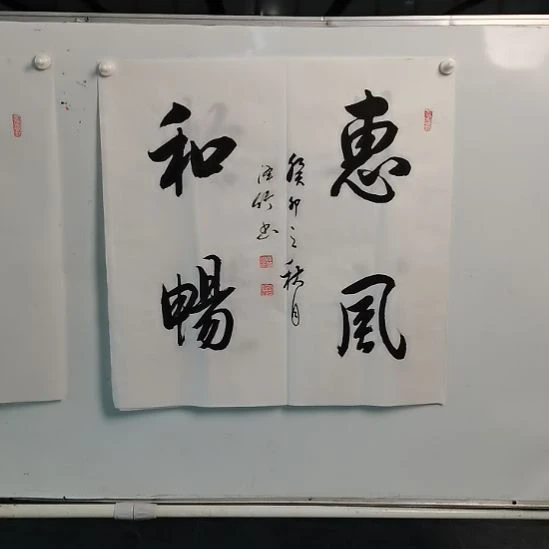 惠風
和暢
癸卯之秋月